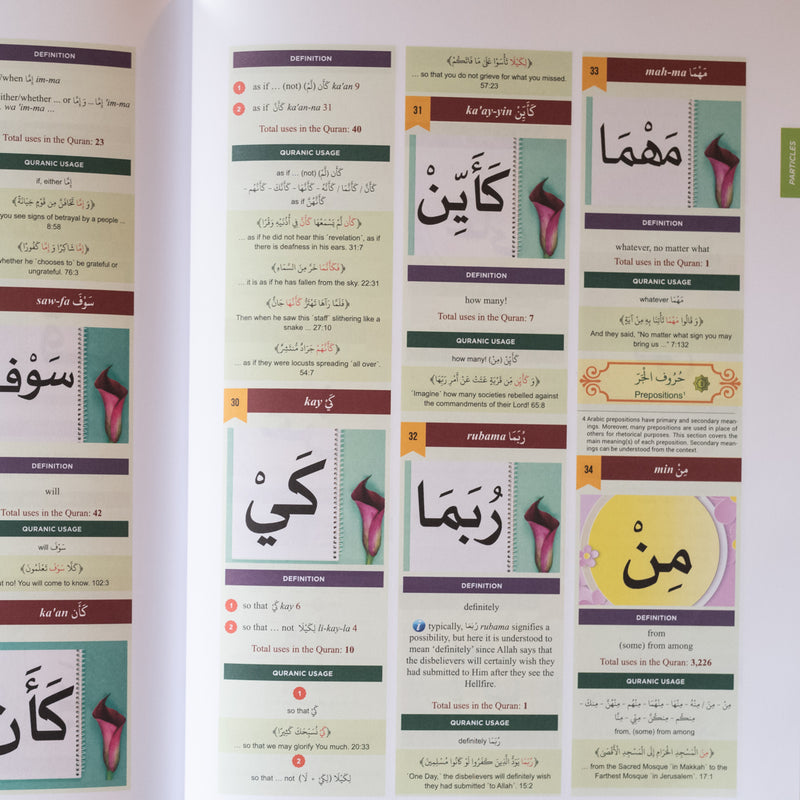 DEFINITION
/when إِمَّا im-ma
either/whether ... or وَ إِمَّا ... إِمَّا 'im-ma
... wa 'im-ma ...
Total uses in the Quran: 23
QURANIC USAGE
if, either إِمَّا
﴿وَ إِمَّا تَخَافَنَّ مِن قَوْمٍ خِيَانَةً﴾
you see signs of betrayal by a people ...
8:58
﴿إِمَّا شَاكِرًا وَ إِمَّا كَفُورًا﴾
whether he ˹chooses to˺ be grateful or
ungrateful. 76:3
saw-fa سَوْفَ
سَوْفَ
DEFINITION
will
Total uses in the Quran: 42
QURANIC USAGE
will سَوْفَ
﴿كَلَّا سَوْفَ تَعْلَمُونَ﴾
but no! You will come to know. 102:3
ka'an كَأَن
كَأَن
DEFINITION
1 as if ... (not) كَأَن (لَّمْ) ka'an 9
2 as if كَأَنَّ ka'an-na 31
Total uses in the Quran: 40
QURANIC USAGE
كَأَن (لَّمْ) as if ... (not)
كَأَنَّ / كَأَنَّمَا / كَأَنَّهُ - كَأَنَّهَا - كَأَنَّكَ - كَأَنَّهُمْ -
as if كَأَنَّهُنَّ
﴿كَأَن لَّمْ يَسْمَعْهَا كَأَنَّ فِي أُذُنَيْهِ وَقْرًا﴾
... as if he did not hear this ˹revelation˺, as if
there is deafness in his ears. 31:7
﴿فَكَأَنَّمَا خَرَّ مِنَ السَّمَاءِ﴾
... it is as if he has fallen from the sky. 22:31
﴿فَلَمَّا رَآهَا تَهْتَزُّ كَأَنَّهَا جَانٌّ﴾
Then when he saw this ˹staff˺ slithering like a
snake ... 27:10
﴿كَأَنَّهُمْ جَرَادٌ مُّنتَشِرٌ﴾
... as if they were locusts spreading ˹all over˺.
54:7
30 kay كَيْ
كَيْ
DEFINITION
1 so that كَيْ kay 6
2 so that ... not لِكَيْلَا li-kay-la 4
Total uses in the Quran: 10
QURANIC USAGE
1
so that كَيْ
﴿كَيْ نُسَبِّحَكَ كَثِيرًا﴾
... so that we may glorify You much. 20:33
2
so that ... not لِكَيْلَا (لِكَيْ + لَا)
﴿لِكَيْلَا تَأْسَوْا عَلَىٰ مَا فَاتَكُمْ﴾
... so that you do not grieve for what you missed.
57:23
31 ka'ay-yin كَأَيِّنْ
كَأَيِّنْ
DEFINITION
how many!
Total uses in the Quran: 7
QURANIC USAGE
how many! كَأَيِّنْ (مِنْ)
﴿وَ كَأَيِّن مِّن قَرْيَةٍ عَتَتْ عَنْ أَمْرِ رَبِّهَا﴾
˹Imagine˺ how many societies rebelled against
the commandments of their Lord! 65:8
32 rubama رُبَمَا
رُبَمَا
DEFINITION
definitely
i typically, رُبَمَا rubama signifies a
possibility, but here it is understood to
mean ‘definitely’ since Allah says that
the disbelievers will certainly wish they
had submitted to Him after they see the
Hellfire.
Total uses in the Quran: 1
QURANIC USAGE
definitely رُبَمَا
﴿رُبَمَا يَوَدُّ الَّذِينَ كَفَرُوا لَوْ كَانُوا مُسْلِمِينَ﴾
˹One Day,˺ the disbelievers will definitely wish
they had submitted ˹to Allah˺. 15:2
33 mah-ma مَهْمَا
مَهْمَا
DEFINITION
whatever, no matter what
Total uses in the Quran: 1
QURANIC USAGE
whatever مَهْمَا
﴿وَ قَالُوا مَهْمَا تَأْتِنَا بِهِ مِنْ آيَةٍ﴾
And they said, “No matter what sign you may
bring us ...” 7:132
حُرُوف الْجَرّ
Prepositions¹
4 Arabic prepositions have primary and secondary mean-
ings. Moreover, many prepositions are used in place of
others for rhetorical purposes. This section covers the
main meaning(s) of each preposition. Secondary mean-
ings can be understood from the context.
34 min مِنْ
مِنْ
DEFINITION
from
(some) from among
Total uses in the Quran: 3,226
QURANIC USAGE
مِنْ - مِنْ / مِنْهُ - مِنْهَا - مِنْهُمَا - مِنْهُم - مِنْهُنَّ - مِنكَ -
مِنكُم - مِنكُنَّ - مِنِّي - مِنَّا
from, (some) from among
﴿مِنَ الْمَسْجِدِ الْحَرَامِ إِلَى الْمَسْجِدِ الْأَقْصَى﴾
... from the Sacred Mosque ˹in Makkah˺ to the
Farthest Mosque ˹in Jerusalem˺. 17:1
PARTICLES